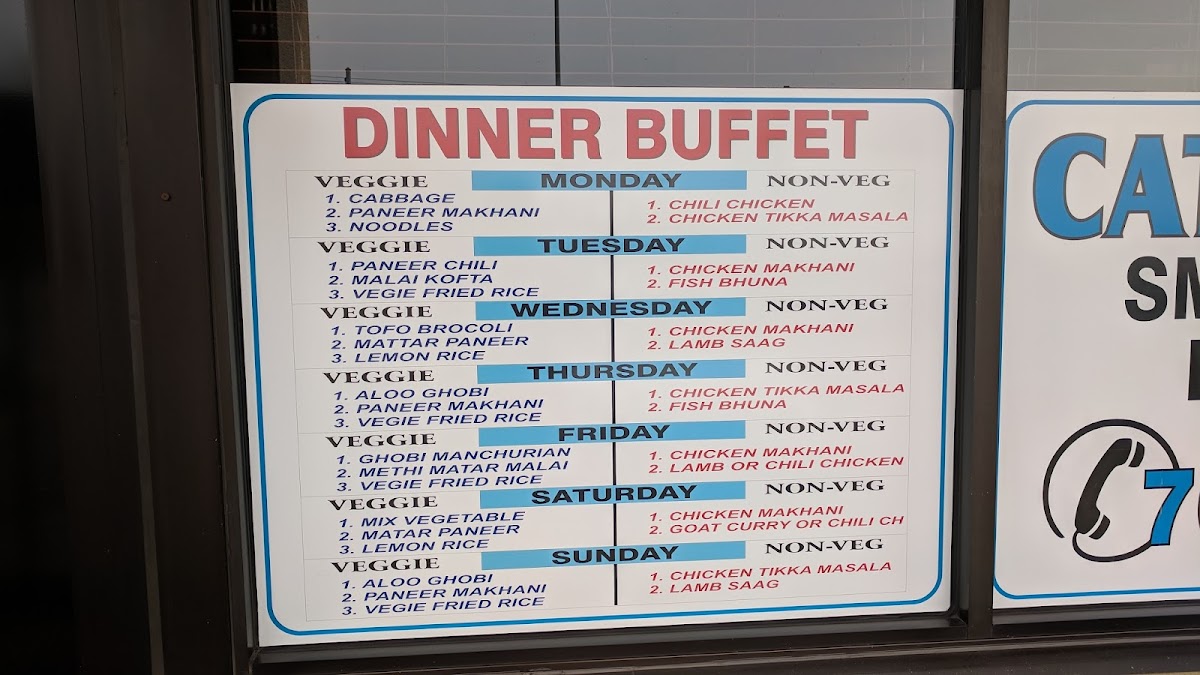 DINNER BUFFET
VEGGIE MONDAY NON-VEG
1. CABBAGE
2. PANEER MAKHANI
3. NOODLES
1. CHILI CHICKEN
2. CHICKEN TIKKA MASALA
VEGGIE TUESDAY NON-VEG
1. PANEER CHILI
2. MALAI KOFTA
3. VEGIE FRIED RICE
1. CHICKEN MAKHANI
2. FISH BHUNA
VEGGIE WEDNESDAY NON-VEG
1. TOFO BROCOLI
2. MATTAR PANEER
3. LEMON RICE
1. CHICKEN MAKHANI
2. LAMB SAAG
VEGGIE THURSDAY NON-VEG
1. ALOO GHOBI
2. PANEER MAKHANI
3. VEGIE FRIED RICE
1. CHICKEN TIKKA MASALA
2. FISH BHUNA
VEGGIE FRIDAY NON-VEG
1. GHOBI MANCHURIAN
2. METHI MATAR MALAI
3. VEGIE FRIED RICE
1. CHICKEN MAKHANI
2. LAMB OR CHILI CHICKEN
VEGGIE SATURDAY NON-VEG
1. MIX VEGETABLE
2. MATAR PANEER
3. LEMON RICE
1. CHICKEN MAKHANI
2. GOAT CURRY OR CHILI CH
VEGGIE SUNDAY NON-VEG
1. ALOO GHOBI
2. PANEER MAKHANI
3. VEGIE FRIED RICE
1. CHICKEN TIKKA MASALA
2. LAMB SAAG
CA
SM
7